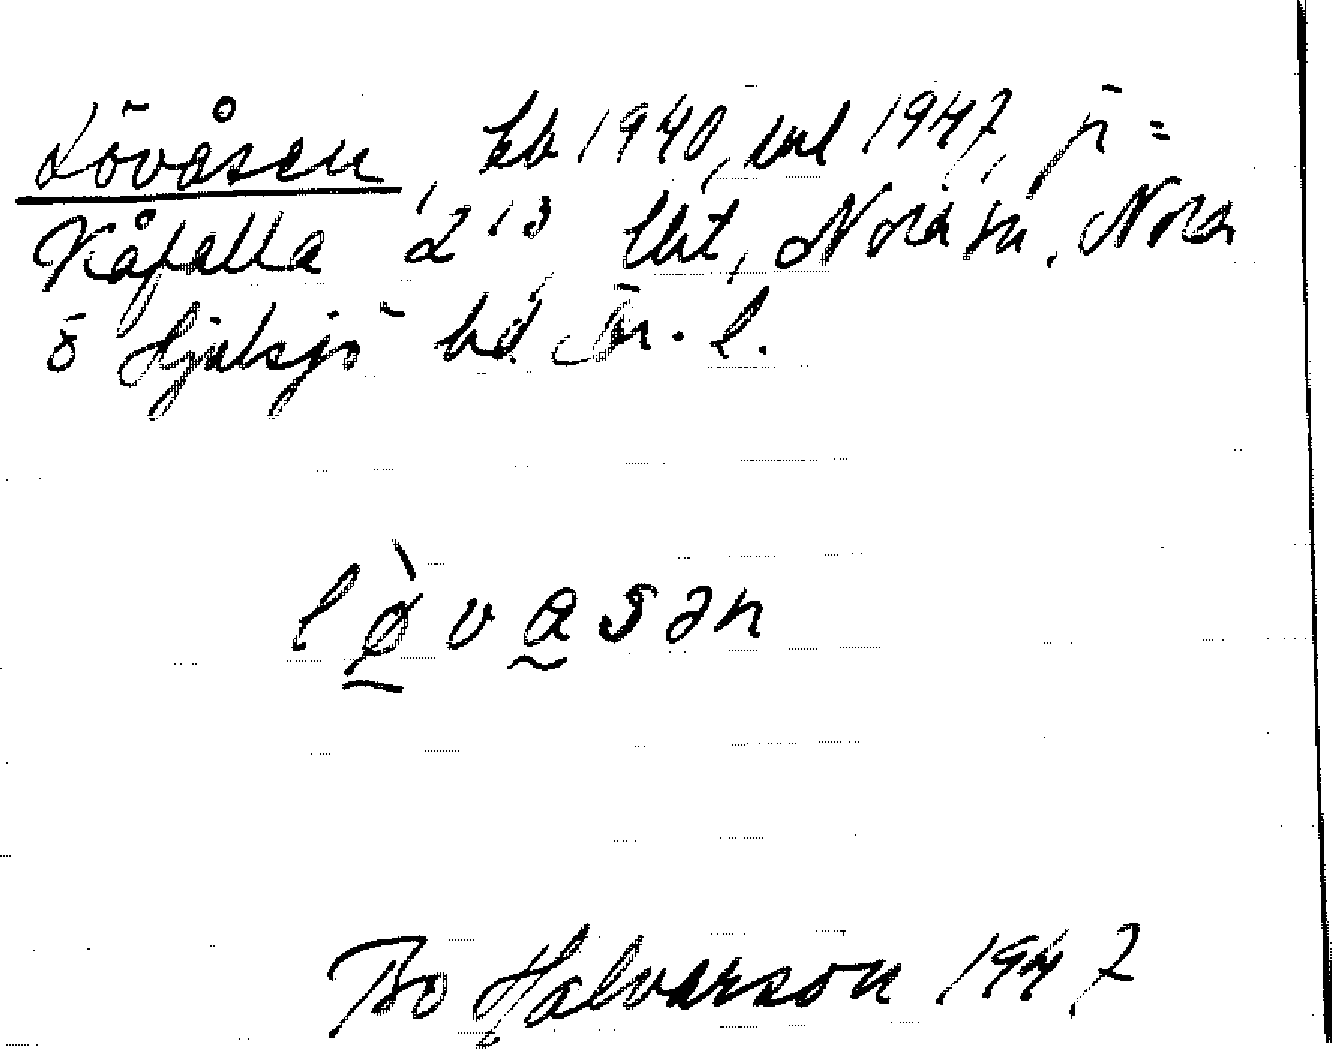 Lövåsen, kb 1940, uul 1947, jr =
Kåfalla 2¹³, lht, Nora sn, Nora
o Hjulsjö bd. Ör. l.
lø̀vasən
Bo Halvarson 1947